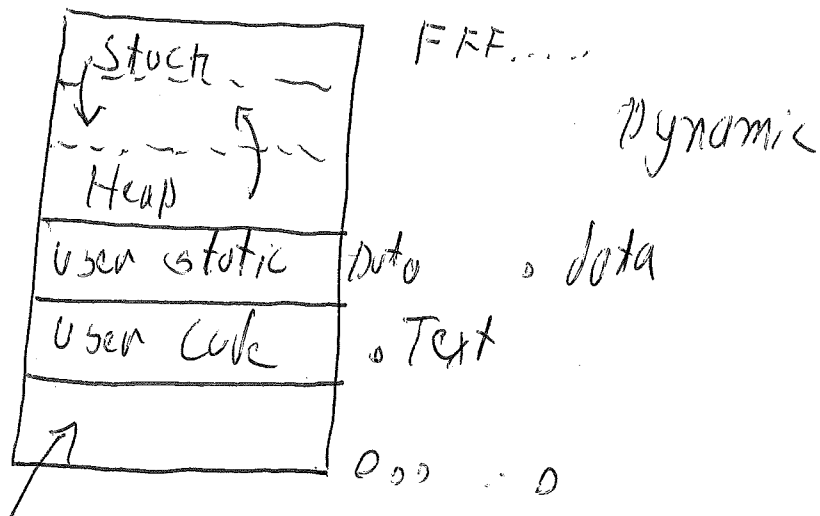 Stack FFF.....
Dynamic
Heap
user static Data .data
user code .Text
000 . . 0